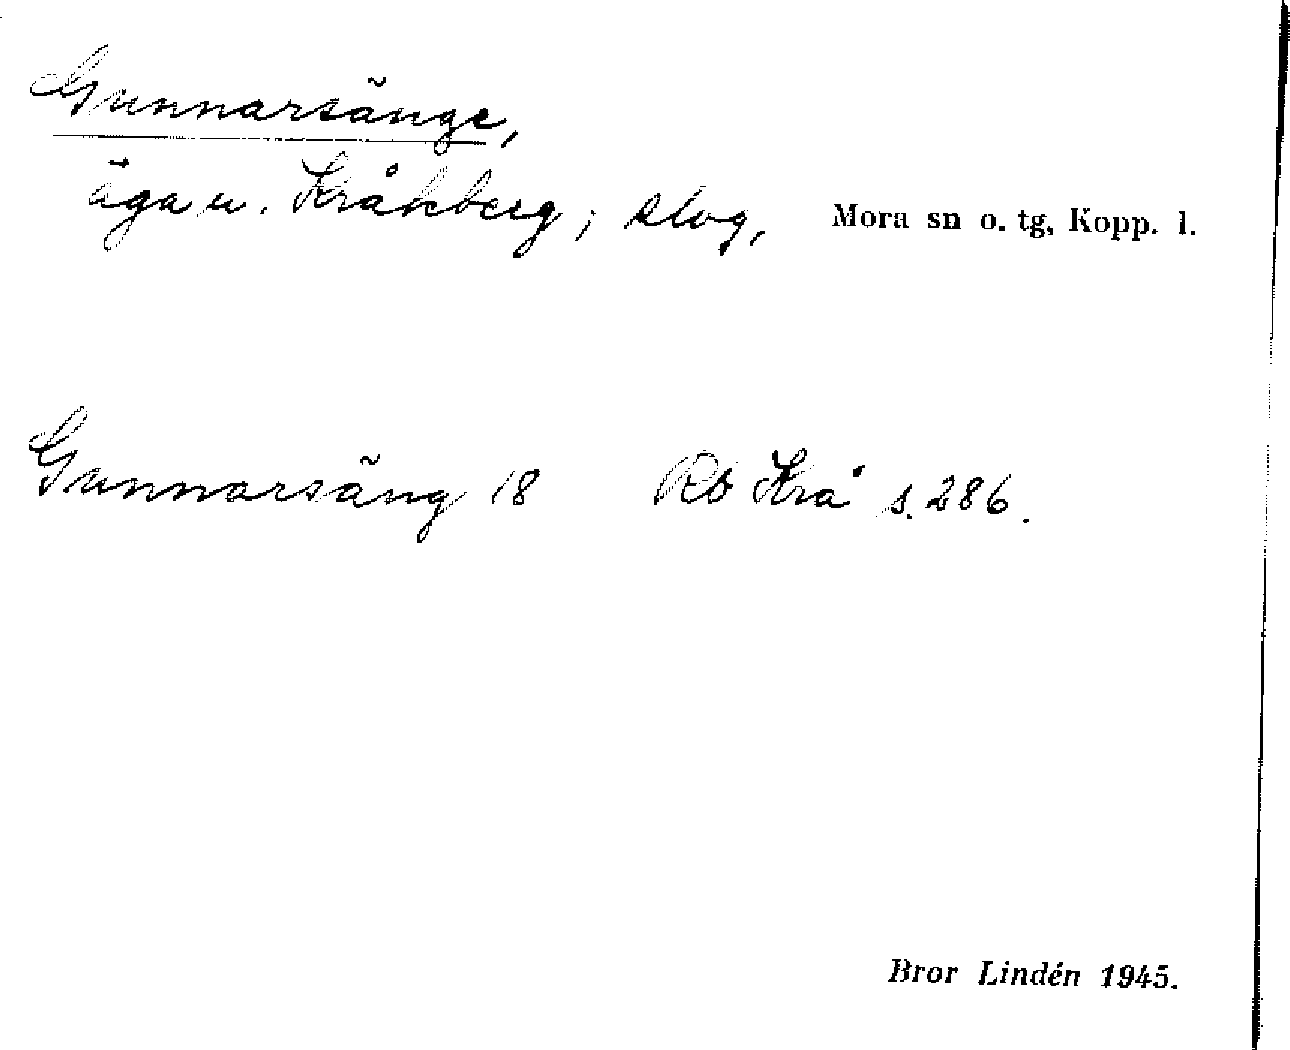 Gunnarsänge,
äga u. Kråkberg; slog, Mora sn o. tg, Kopp. l.
Gunnarsäng 18 Rb Krå s. 286.
Bror Lindén 1945.